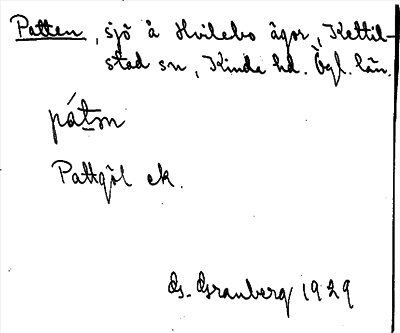 Patten, sjö å Hvilebo ägor, Kettil-
stad sn, Kinda hd. Ögl. län.
pátn̥
Pattgöl ek.
G. Granberg 1929